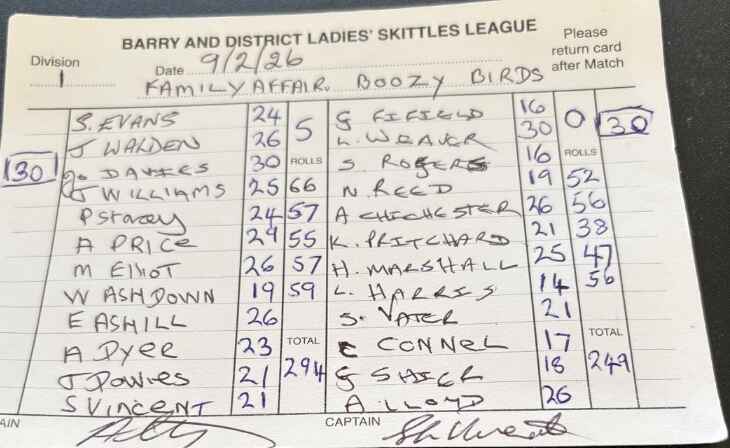 BARRY AND DISTRICT LADIES' SKITTLES LEAGUE
Please return card after Match
Division 1
Date 9/2/26
FAMILY AFFAIR. BOOZY BIRDS
S. EVANS 24 5 G FIFIELD 16 0 30
J WALDEN 26 L. WEAVER 30
30 DAVIES 30 ROLLS S. ROGERS 16 ROLLS
J WILLIAMS 25 66 N. REED 19 52
P Stacey 24 57 A CHICHESTER 26 56
A PRICE 29 55 K. PRITCHARD 21 38
M Elliot 26 57 H. MARSHALL 25 47
W ASHDOWN 19 59 L. HARRIS 14 56
E ASHILL 26 S. VATER 21
A Dyer 23 TOTAL C CONNEL 17 TOTAL
J Davies 21 294 G SHIER 18 249
S VINCENT 21 A. LLOYD 26
AIN CAPTAIN